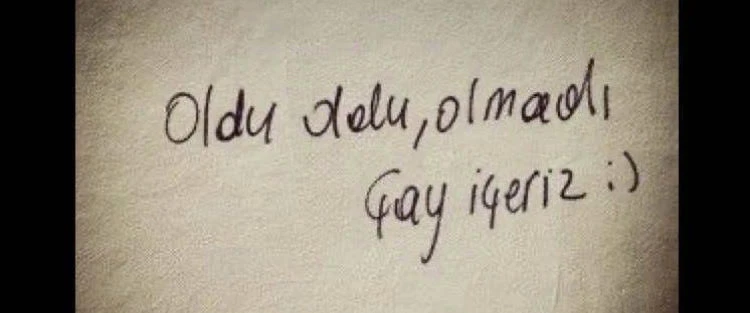 Oldu oldu, olmadı
Çay içeriz :)